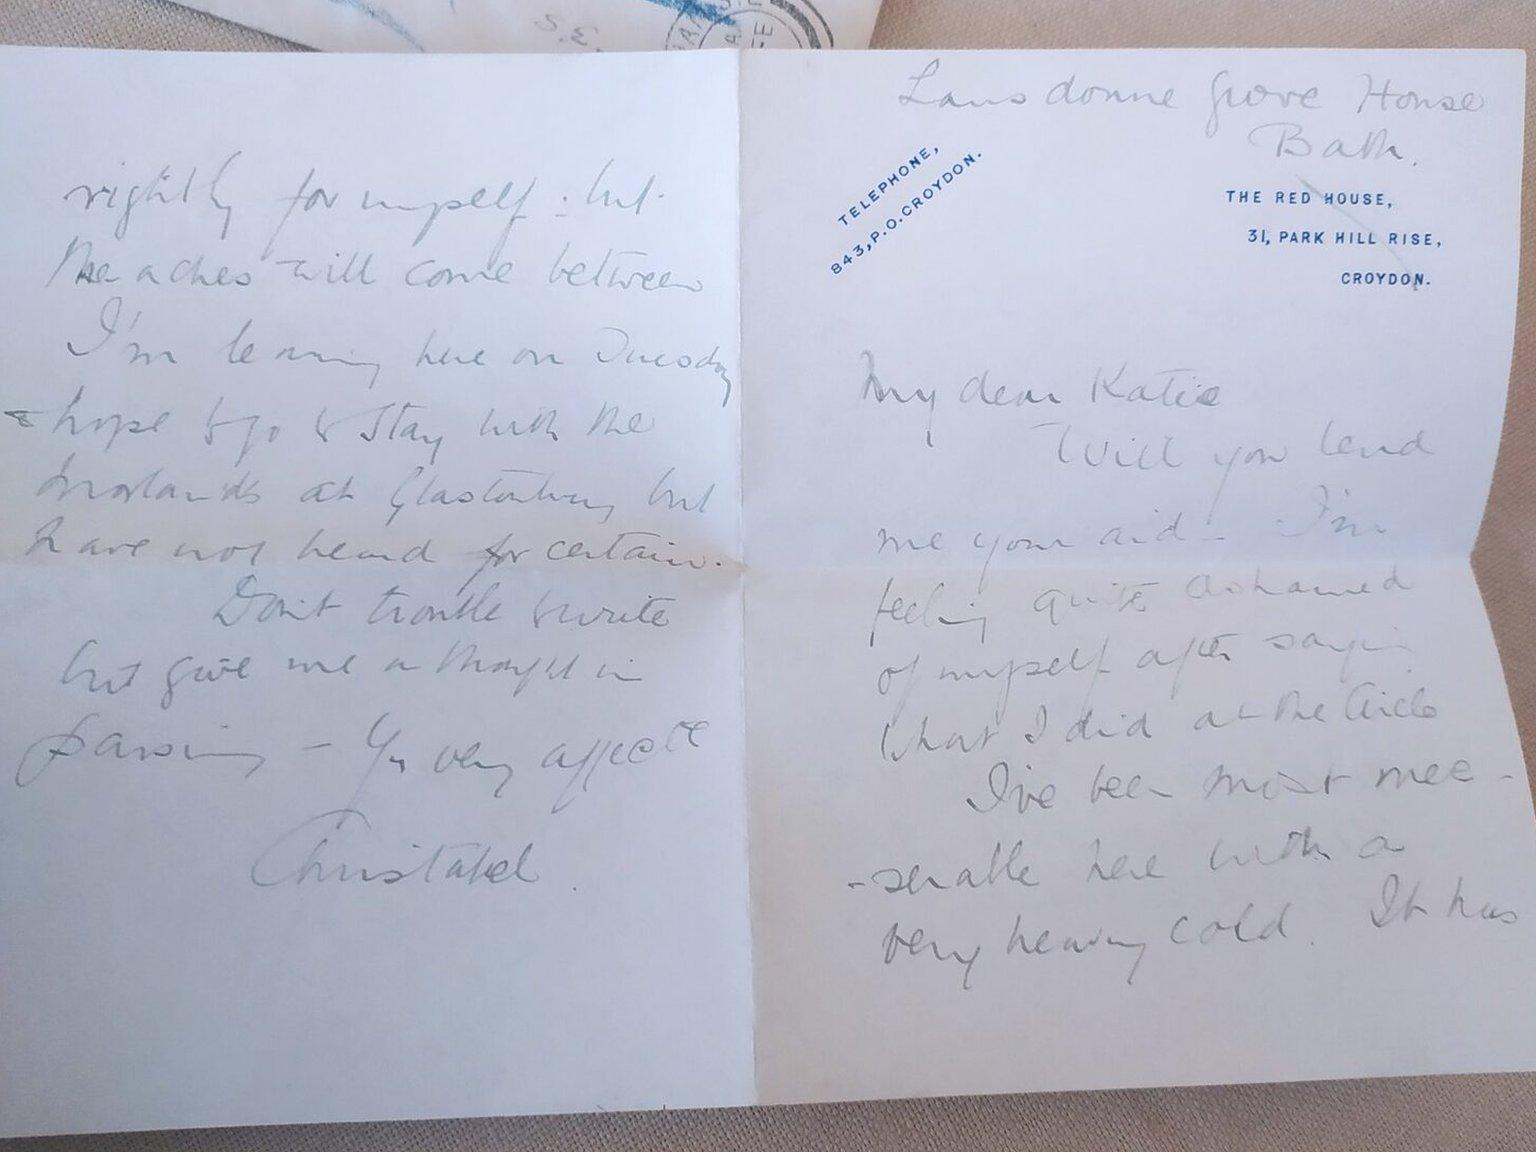 S.E.
Lansdowne Grove House
Bath.
TELEPHONE,
843, P.O. CROYDON.
THE RED HOUSE,
31, PARK HILL RISE,
CROYDON.
My dear Katie
Will you lend
me your aid - I'm
feeling quite ashamed
of myself after saying
what I did at the Circle
I've been most mee-
-serable here with a
very heavy cold. It has
rightly for myself: but
the aches will come between
I'm leaving here on Tuesday
& hope to go to stay with the
at Glastonbury but
have not heard for certain.
Don't trouble to write
but give me a thought in
passing - Yr very affecte
Christabel.